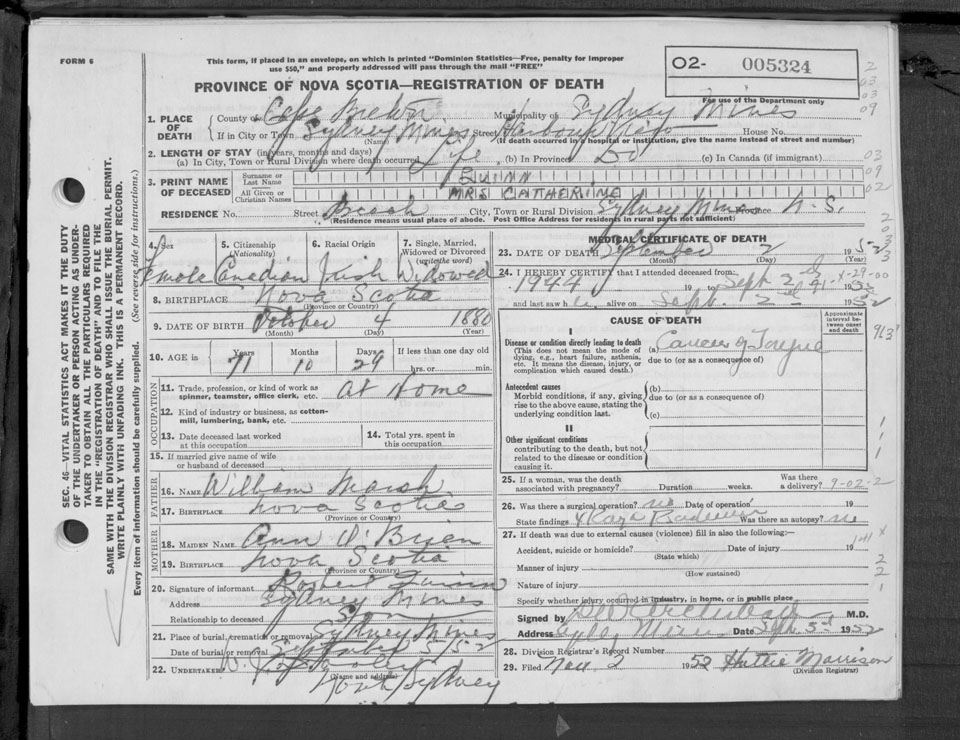 FORM 6
This form, if placed in an envelope, on which is printed "Dominion Statistics—Free, penalty for improper
use $50," and properly addressed will pass through the mail "FREE"
PROVINCE OF NOVA SCOTIA—REGISTRATION OF DEATH
O2- 005324
For use of the Department only
2
03
03
09
1. PLACE OF DEATH
County of Cape Breton Municipality of Sydney Mines
If in City or Town Sydney Mines Street Harbour View House No.
(Name) (If death occurred in a hospital or institution, give the name instead of street and number)
2. LENGTH OF STAY (in years, months and days)
(a) In City, Town or Rural Division where death occurred Life (b) In Province Do (c) In Canada (if immigrant) 03
3. PRINT NAME OF DECEASED
Surname or Last Name QUINN 09
All Given or Christian Names MRS CATHERINE 02
RESIDENCE No. Street Beach City, Town or Rural Division Sydney Mines Province N.S.
(Residence means usual place of abode. Post Office Address for residents in rural parts not sufficient)
4. Sex 5. Citizenship (Nationality) 6. Racial Origin 7. Single, Married, Widowed or Divorced (write the word)
Female Canadian Irish Widowed
8. BIRTHPLACE Nova Scotia
(Province or Country)
9. DATE OF BIRTH October 4 1880
(Month) (Day) (Year)
10. AGE in Years Months Days If less than one day old
71 10 29 hrs. or min.
OCCUPATION
11. Trade, profession, or kind of work as spinner, teamster, office clerk, etc. At Home
12. Kind of industry or business, as cotton-mill, lumbering, bank, etc.
13. Date deceased last worked at this occupation
14. Total yrs. spent in this occupation
15. If married give name of wife or husband of deceased
FATHER
16. Name William Marsh
17. Birthplace Nova Scotia
(Province or Country)
MOTHER
18. MAIDEN NAME Ann O'Brien
19. BIRTHPLACE Nova Scotia
(Province or Country)
20. Signature of informant Robert Quinn
Address Sydney Mines
Relationship to deceased Son
21. Place of burial, cremation or removal Sydney Mines
Date of burial or removal September 5/52
22. UNDERTAKER
(Name and address)
North Sydney
MEDICAL CERTIFICATE OF DEATH
23. DATE OF DEATH September 2 1952
(Month) (Day) (Year)
24. I HEREBY CERTIFY that I attended deceased from:
1944 19 to Sept 2nd 1952
and last saw h alive on Sept. 2nd 1952
8-29-00
CAUSE OF DEATH
Approximate interval between onset and death
I
Disease or condition directly leading to death
(This does not mean the mode of dying, e.g., heart failure, asthenia, etc. It means the disease, injury, or complication which caused death.)
(a) Cancer of Tongue
due to (or as a consequence of)
Antecedent causes
Morbid conditions, if any, giving rise to the above cause, stating the underlying condition last.
(b)
due to (or as a consequence of)
(c)
II
Other significant conditions
contributing to the death, but not related to the disease or condition causing it.
25. If a woman, was the death associated with pregnancy? Duration weeks. Was there a delivery? 9-02-2
26. Was there a surgical operation? no Date of operation 19
State findings Was there an autopsy? no
27. If death was due to external causes (violence) fill in also the following:—
Accident, suicide or homicide? Date of injury 19
(State which)
Manner of injury
(How sustained)
Nature of injury
Specify whether injury occurred in industry, in home, or in public place
Signed by M.D.
Address Sydney Mines Date Sept. 5th 1952
28. Division Registrar's Record Number
29. Filed Nov 2 1952 Hattie Morrison
(Division Registrar)
SEC. 46—VITAL STATISTICS ACT MAKES IT THE DUTY
OF THE UNDERTAKER OR PERSON ACTING AS UNDER-
TAKER TO OBTAIN ALL THE PARTICULARS REQUIRED
IN THE "REGISTRATION OF DEATH" AND TO FILE THE
SAME WITH THE DIVISION REGISTRAR WHO SHALL ISSUE THE BURIAL PERMIT.
WRITE PLAINLY WITH UNFADING INK. THIS IS A PERMANENT RECORD.
Every item of information should be carefully supplied. (See reverse side for instructions.)